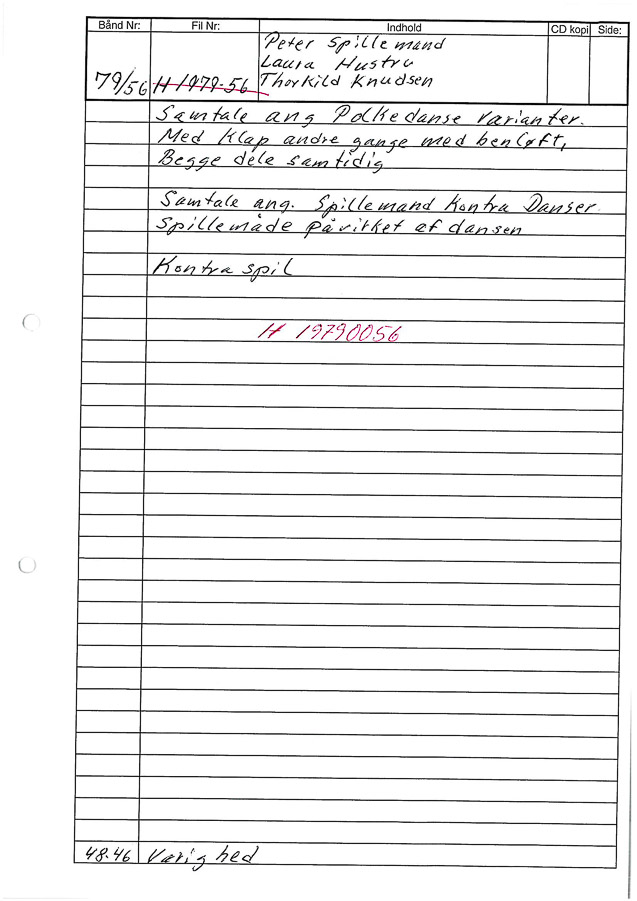 Bånd Nr: Fil Nr: Indhold CD kopi Side:
Peter Spillemand
Laura Hustru
79/56 H 1979-56 Thorkild Knudsen
Samtale ang Polkedanse varianter.
Med Klap andre gange med benløft,
Begge dele samtidig
Samtale ang. Spillemand Kontra Danser.
Spillemåde påvirket af dansen
Kontra spil
H 19790056
48.46 Varighed